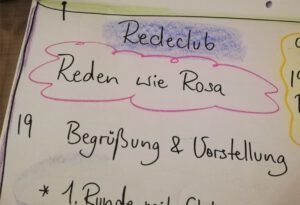 Redeclub
Reden wie Rosa
19 Begrüßung & Vorstellung
* 1. Runde mit